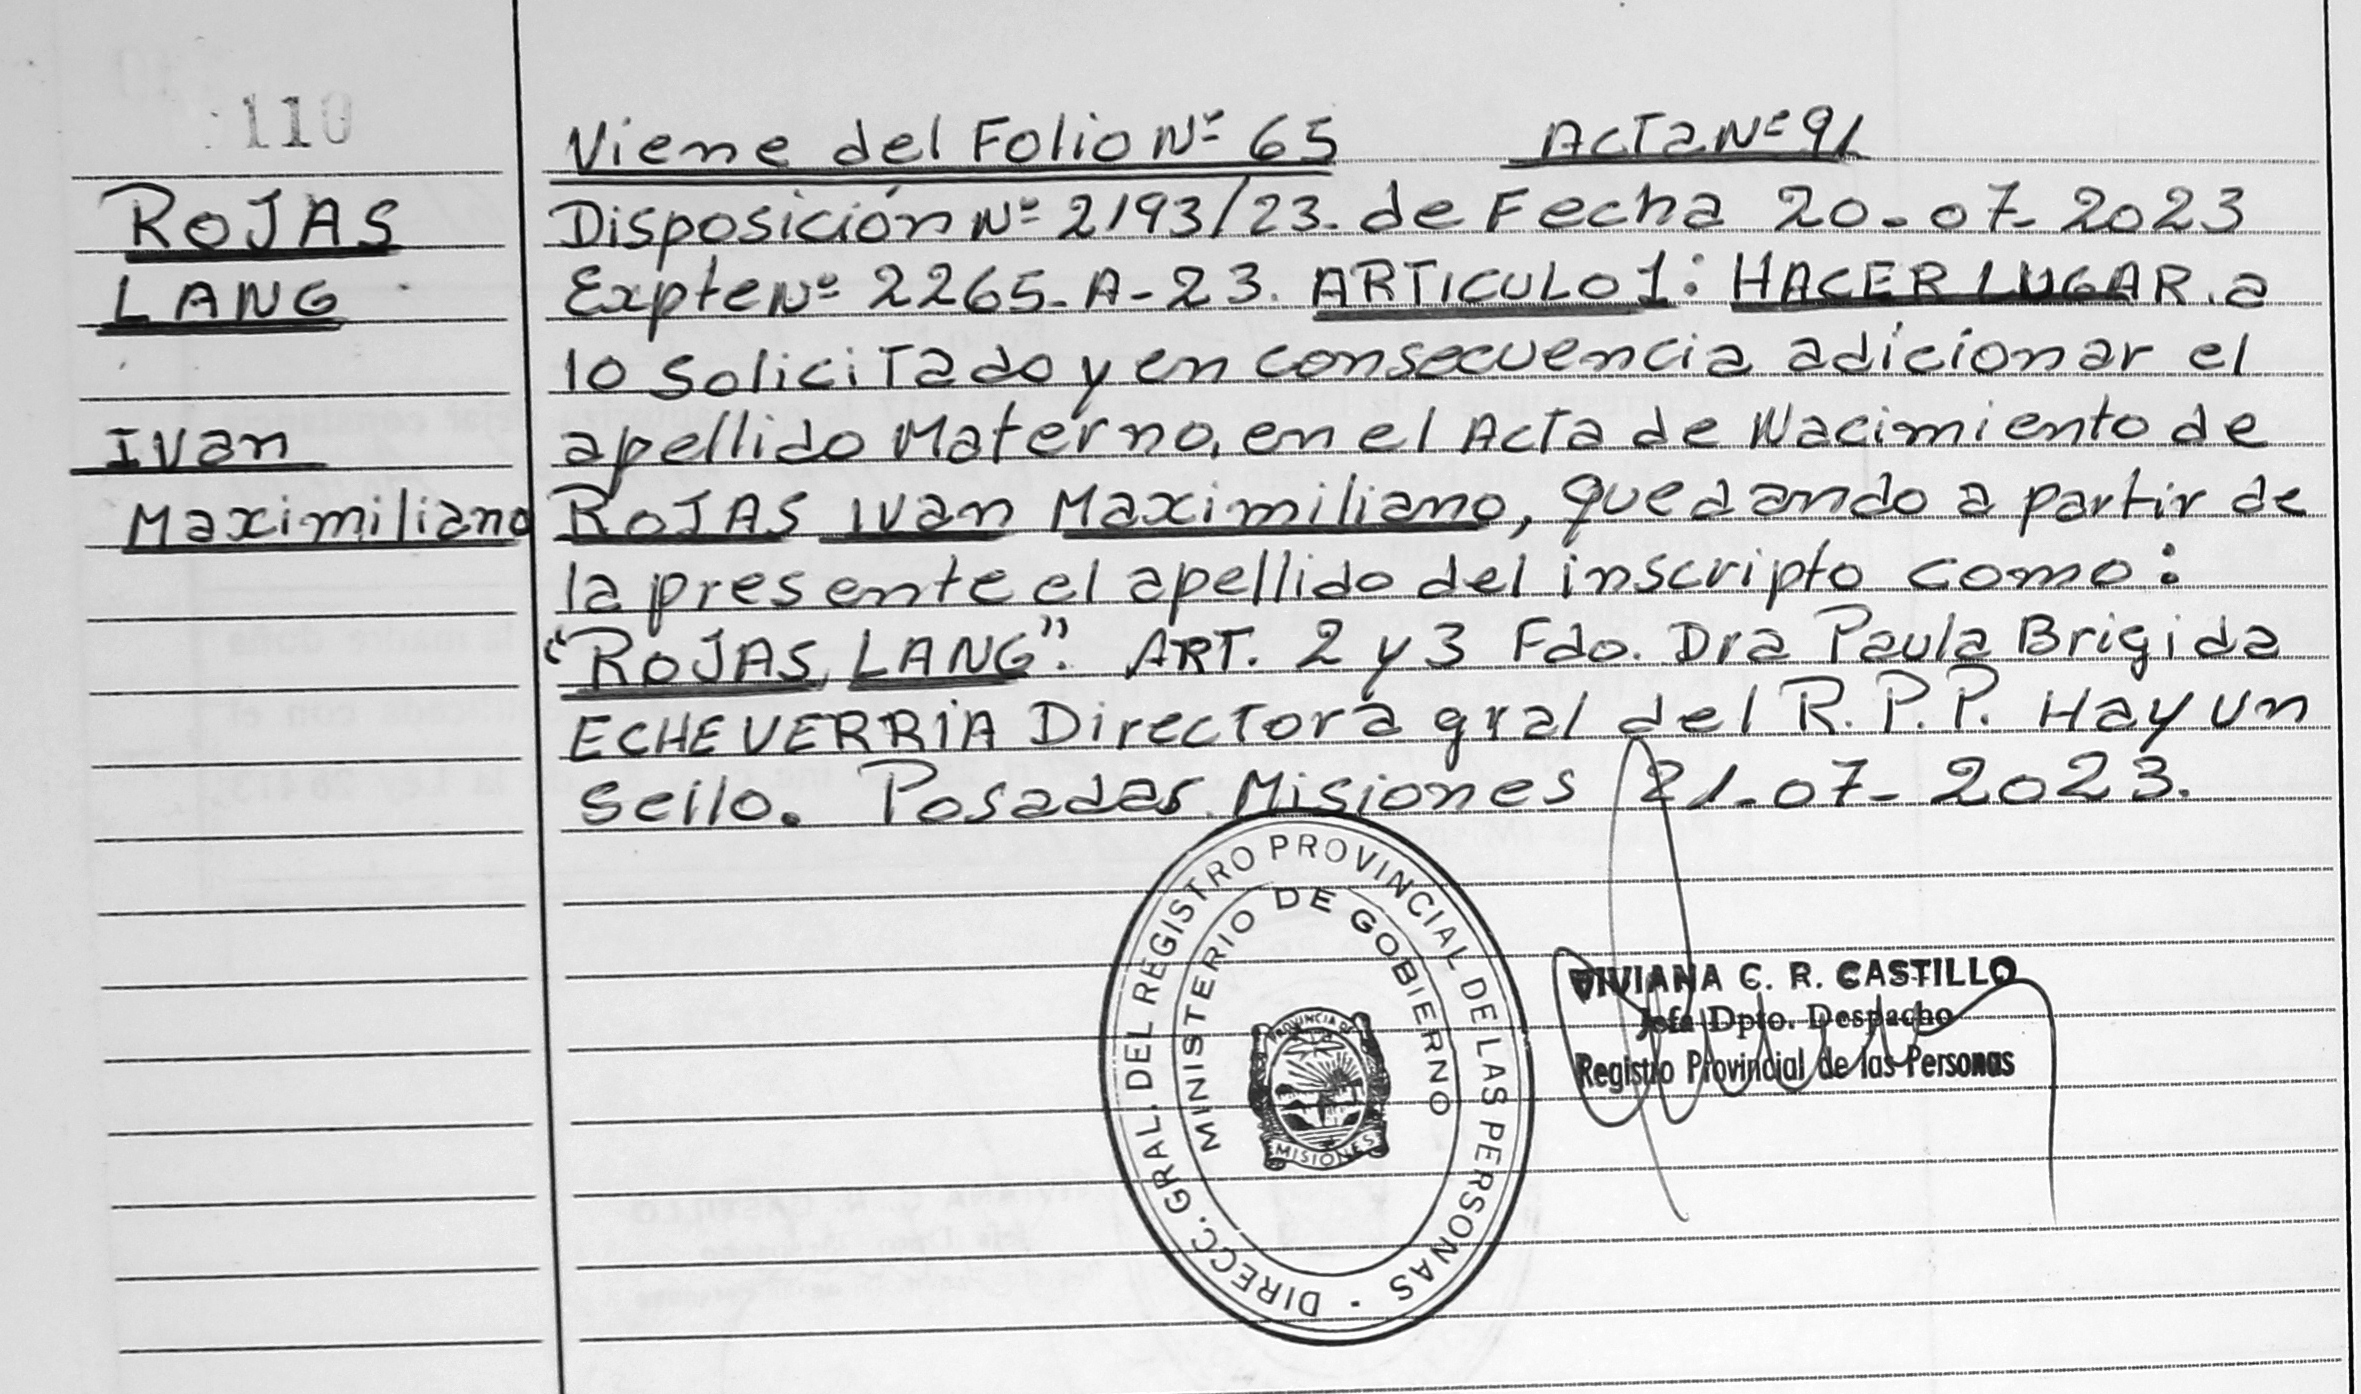 110
ROJAS
LANG
Ivan
Maximiliano
Viene del Folio Nº 65 ACTa Nº 91
Disposición Nº 2193/23. de Fecha 20-07-2023
Expte Nº 2265-A-23. ARTICULO 1: HACER LUGAR. a
lo solicitado y en consecuencia adicionar el
apellido Materno, en el Acta de Nacimiento de
ROJAS Ivan Maximiliano, quedando a partir de
la presente el apellido del inscripto como:
"ROJAS, LANG". ART. 2 y 3 Fdo. Dra Paula Brigida
ECHEVERRIA Directora gral del R.P.P. Hay un
sello. Posadas Misiones 21-07-2023.
DIRECC. GRAL. DEL REGISTRO PROVINCIAL DE LAS PERSONAS -
MINISTERIO DE GOBIERNO
PROVINCIA DE
MISIONES
VIVIANA C. R. CASTILLO
Jefa Dpto. Despacho
Registro Provincial de las Personas